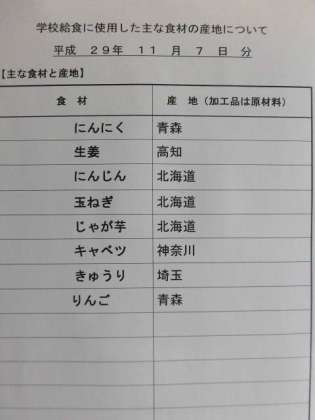 学校給食に使用した主な食材の産地について
平成 29年 11 月 7 日 分
【主な食材と産地】
食 材 産 地（加工品は原材料）
にんにく 青森
生姜 高知
にんじん 北海道
玉ねぎ 北海道
じゃが芋 北海道
キャベツ 神奈川
きゅうり 埼玉
りんご 青森